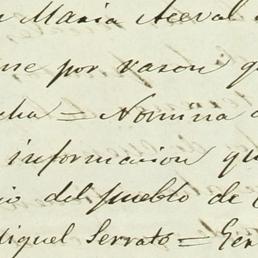 Maria Aceval
me por razon q
cha = Nomina
informacion qu
io del pueblo de
Miguel Serrato = Ger